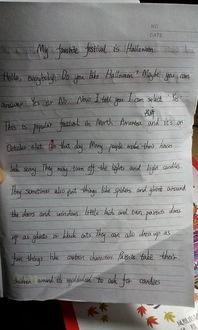 NO.
DATE
My favorite festival is Halloween
Hello, everybody! Do you like Halloween? Maybe you can
answer Yes or No. Now I tell you I can select Yes
This is popular festival in North America and it's on
October 31st. On that day Many people make their
look scary. They may turn off the lights and light candles.
They sometimes also put things like spiders and ghosts around
the doors and windows. Little kids and even parents dress
up as ghosts or black cats they can also dress up as
fun things like cartoon characters. Parents take their
children around to ask for candies